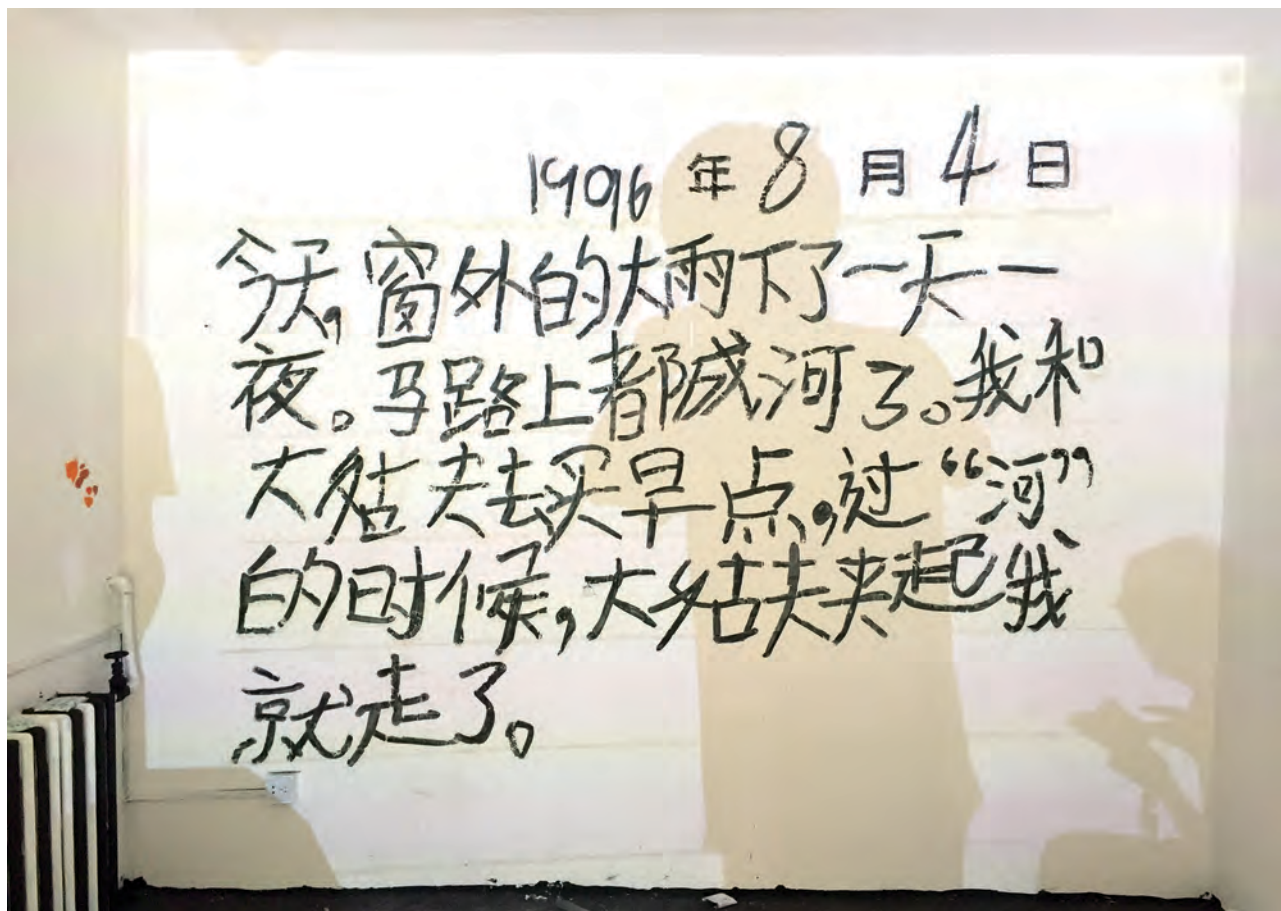 1996 年 8 月 4 日
今天,窗外的大雨下了一天一
夜。马路上都成河了。我和
大姑夫去买早点,过“河”
的时候,大姑夫夹起我
就走了。